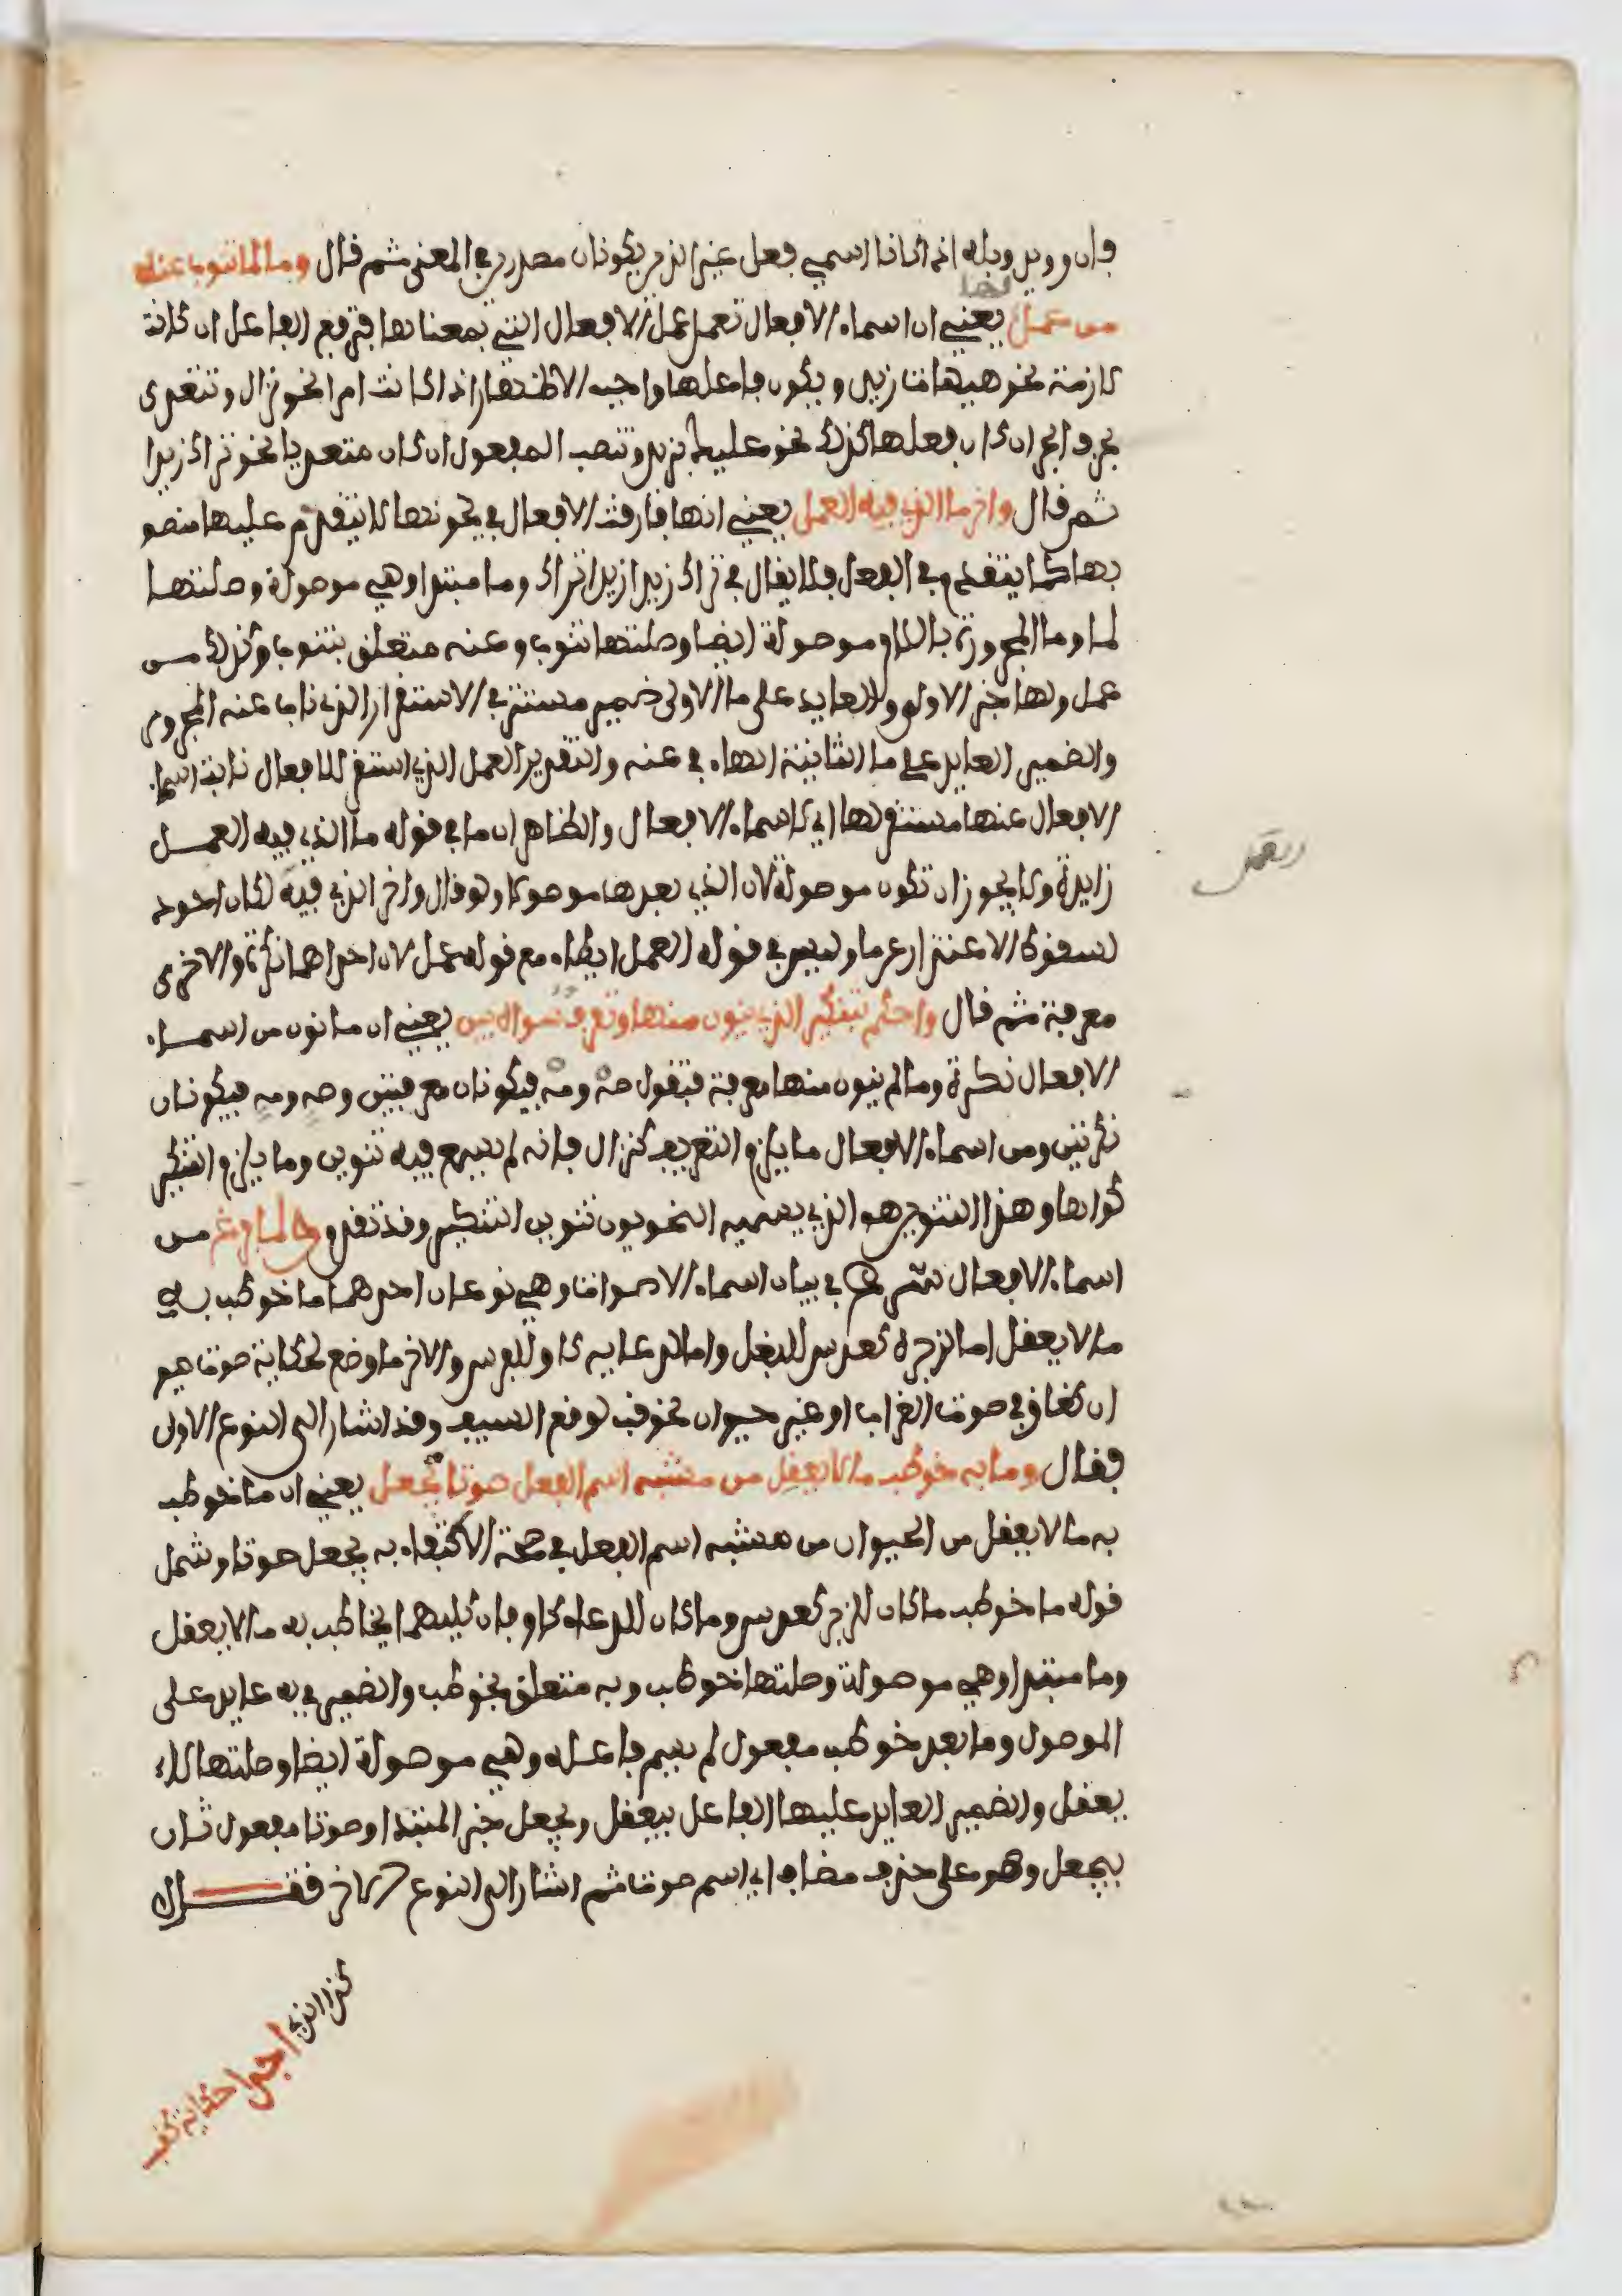 فان رويد وبله اذا كانا اسمي فعل غير الذين يكونان مصدرين في المعنى ثم قال وما لما تنوب عنه
من عمل لها يعني ان اسماء الافعال تعمل عمل الافعال التي بمعناها فترفع الفاعل ان كانت
لازمة نحو هيهات زيد ويكون فاعلها واجب الاضمار اذا كانت امرا نحو نزال وتتعدى
بحرف الجر ان كان فعلها كذلك نحو عليك بزيد وتنصب المفعول ان كان متعديا نحو تراك زيدا
ثم قال واخر ما الذي فيه العمل يعني انها فارقت الافعال في كونها لا يتقدم عليها منصو
بها كما يتقدم في الفعل فلا يقال في تراك زيدا زيدا تراك وما مبتدا وهي موصولة وصلتها
لما وما المجرورة باللام موصولة ايضا وصلتها تنوب وعنه متعلق بتنوب وكذلك من
عمل ولها خبر الاولى والعايد على ما الاولى ضمير مستتر في الاستقرار الذي ناب عنه المجرور
والضمير العايد على ما الثانية الهاء في عنه والتقدير العمل الذي استقر للافعال نابت اسماء
الافعال عنها مستقر لها اي لاسماء الافعال والظاهر ان ما في قوله ما الذي فيه العمل
زايدة ولا يجوز ان تكون موصولة لان الذي بعدها موصولا ولو قال واخر الذي فيه لكان اجود
لسقوط الاعتذار عن ما وليس في قوله العمل ايطاء مع قوله عمل لان احداهما نكرة والاخرى
معرفة ثم قال واحكم بتنكير الذي ينون منها وتعريف سواه بين يعني ان ما نون من اسماء
الافعال نكرة وما لم ينون منها معرفة فتقول صه ومه فيكونان معرفتين وصه ومه فيكونان
نكرتين ومن اسماء الافعال ما يلزم التعريف كنزال فانه لم يسمع فيه تنوين وما يلزم التنكير
كواها وهذا التنوين هو الذي يسميه النحويون تنوين التنكير وقد تقدم ولما فرغ من
اسماء الافعال شرع في بيان اسماء الاصوات وهي نوعان احدهما ما خوطب به
ما لا يعقل اما لزجره كعدس للبغل واما لدعايه كاو للفرس والاخر ما وضع لحكاية صوت حيو
ان كغاق في صوت الغراب او غير حيوان نحو قب لوقع السيف وقد اشار الى النوع الاول
فقال وما به خوطب ما لا يعقل من مشبه اسم الفعل صوتا يجعل يعني ان ما خوطب
به ما لا يعقل من الحيوان من مشبه اسم الفعل في صحة الاكتفاء به يجعل صوتا وشمل
قوله ما خوطب ما كان للزجر كعدس وما كان للدعاء كاو فان كليهما يخاطب به ما لا يعقل
وما مبتدا وهي موصولة وصلتها خوطب وبه متعلق بخوطب والضمير في به عايد على
الموصول وما بعد خوطب مفعول لم يسم فاعله وهي موصولة ايضا وصلتها لا
يعقل والضمير العايد عليها الفاعل بيعقل ويجعل خبر المبتدا وصوتا مفعول ثان
بيجعل وهو على حذف مضاف اي اسم صوت ثم اشار الى النوع الاخر فقال
كذا الذي اجدى حكاية كقب